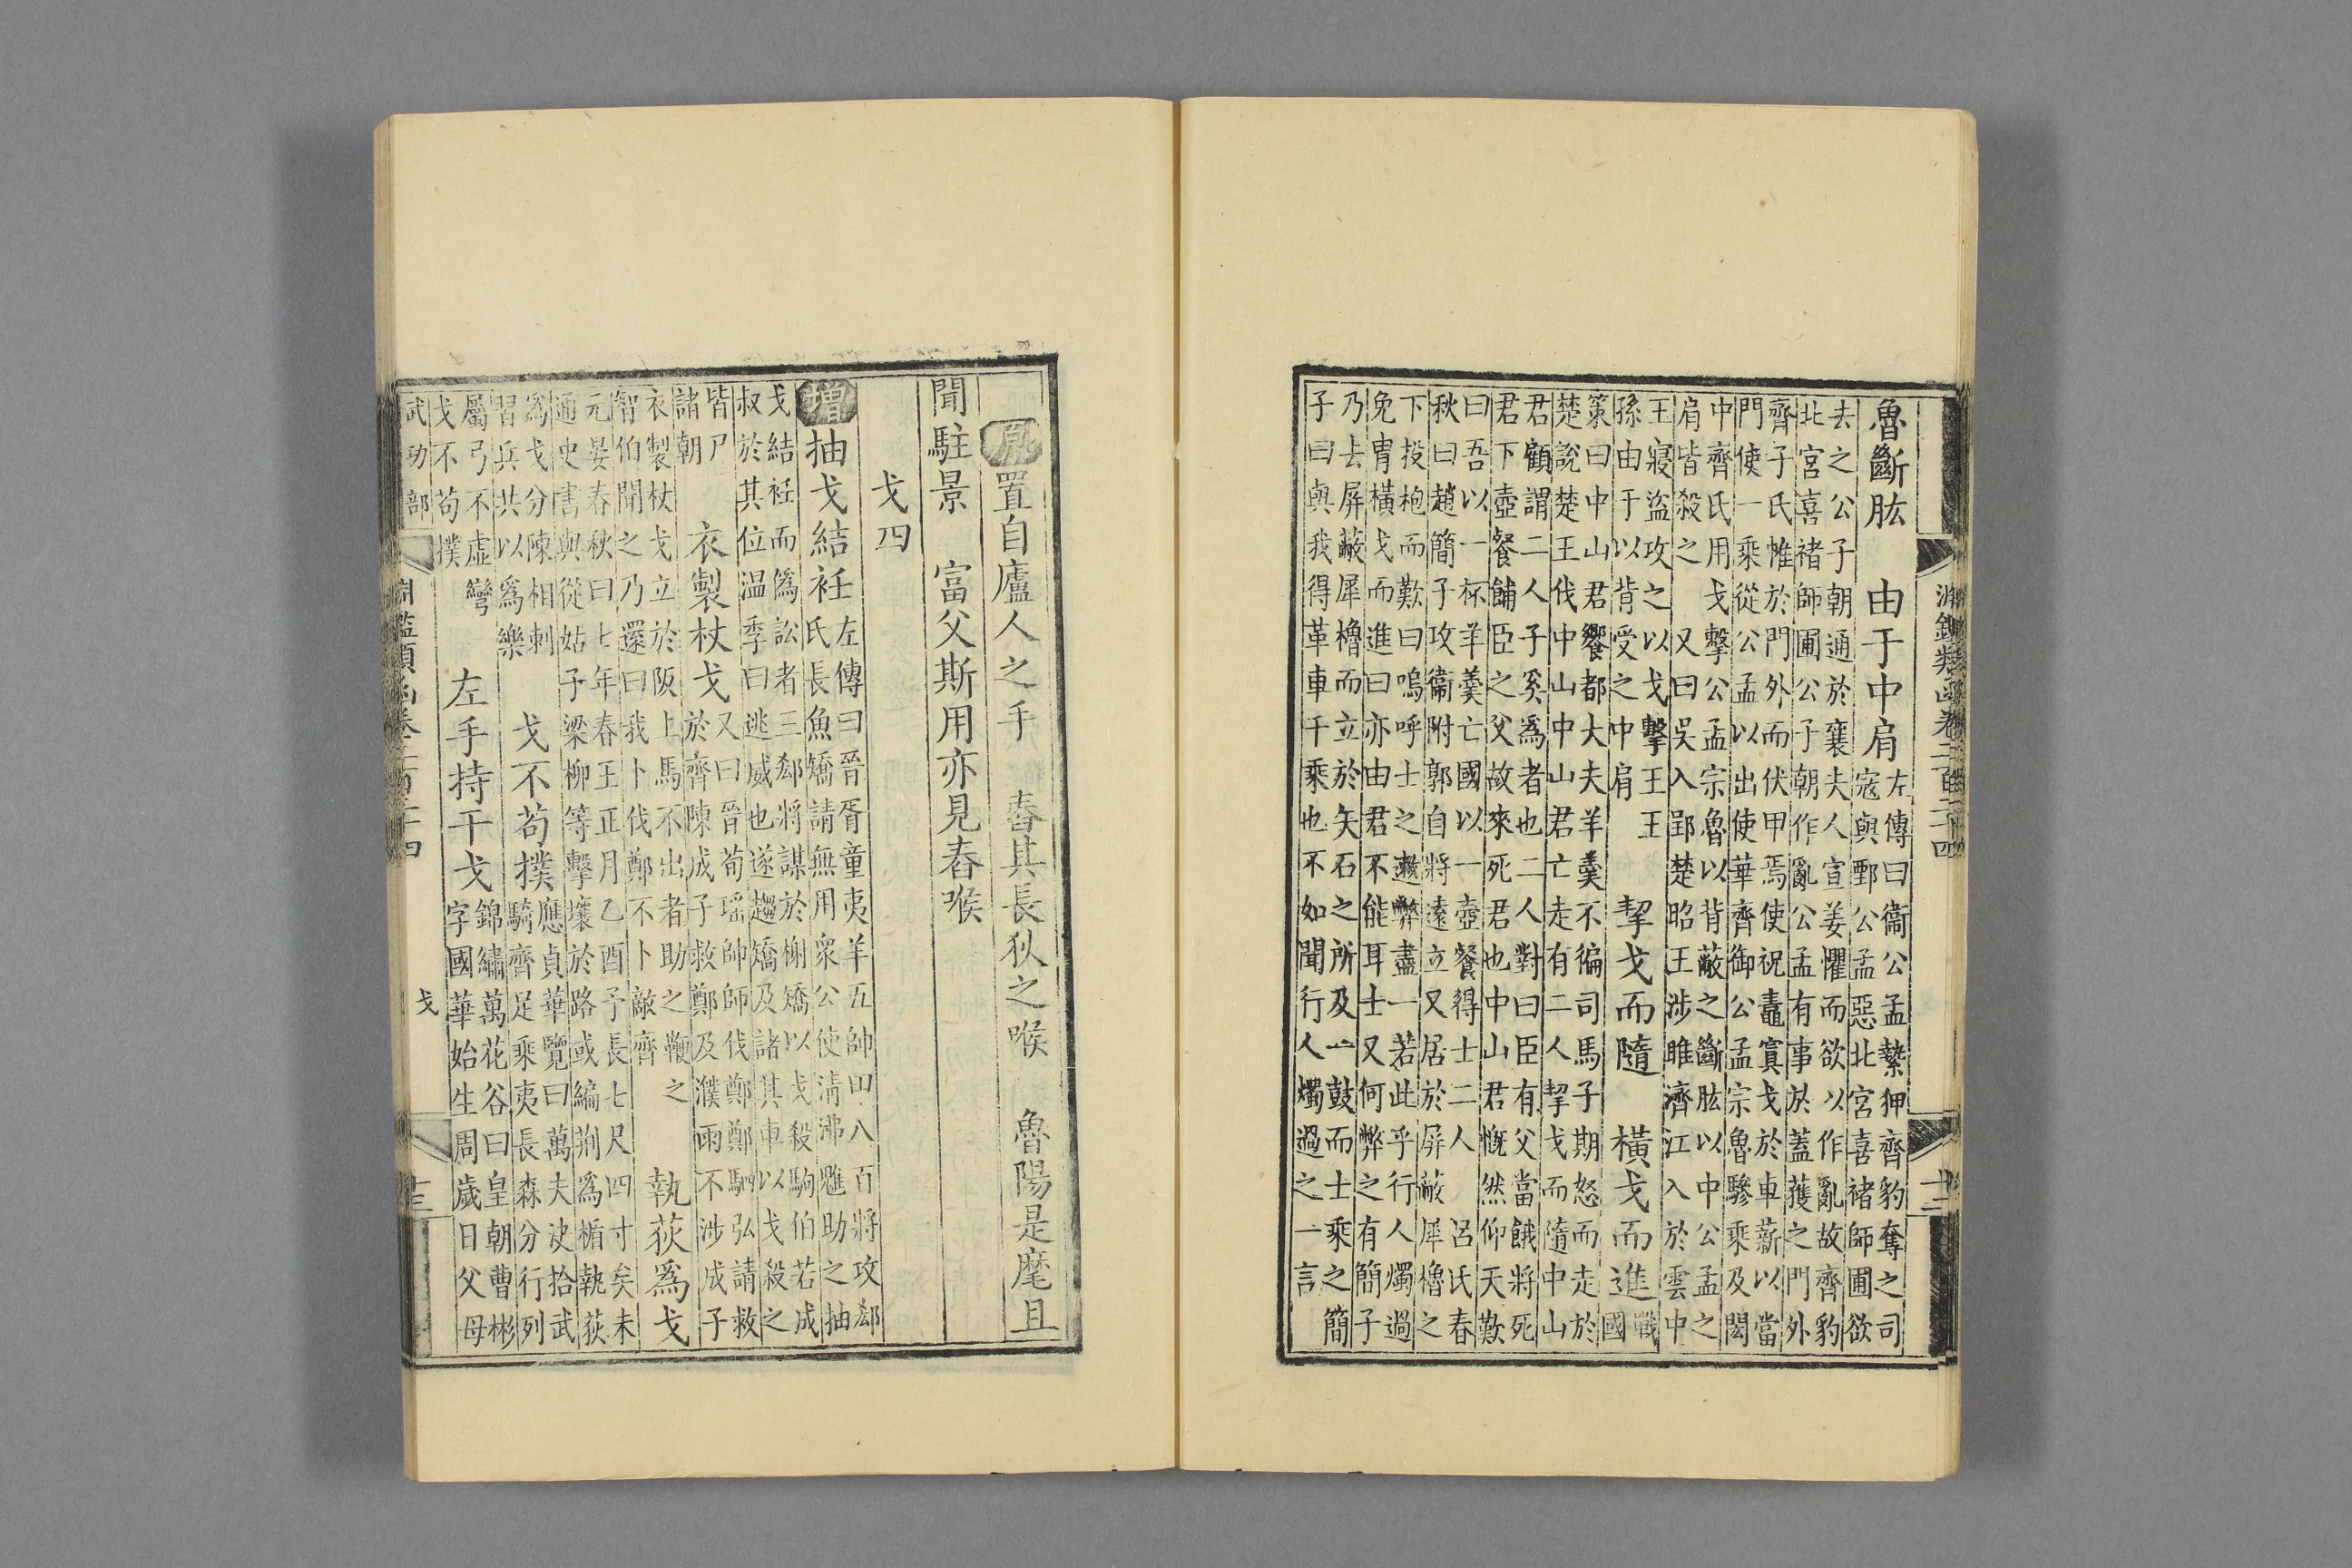 淵鑑類函卷二百二十四 十二
魯斷肱 由于中肩 左傳曰衞公孟縶狎齊豹奪之司
寇與鄄公孟惡北宮喜褚師圃欲
去之公子朝通於襄夫人宣姜懼而欲以作亂故齊豹
北宮喜褚師圃公子朝作亂公孟有事於蓋獲之門外
齊子氏帷於門外而伏甲焉使祝鼃寘戈於車薪以當
門使一乘從公孟以出使華齊御公孟宗魯驂乘及閎
中齊氏用戈擊公孟宗魯以背蔽之斷肱以中公孟之
肩皆殺之 又曰吳入郢楚昭王涉雎濟江入於雲中
王寢盜攻之以戈擊王王
孫由于以背受之中肩
挈戈而隨 橫戈而進 戰
國
策曰中山君饗都大夫羊羹不徧司馬子期怒而走於
楚說楚王伐中山中山君亡走有二人挈戈而隨中山
君顧謂二人子奚爲者也二人對曰臣有父當餓將死
君下壺餐餔臣之父故來死君也中山君慨然仰天歎
曰吾以一杯羊羹亡國以一壺餐得士二人 呂氏春
秋曰趙簡子攻衞附郭自將遠立又居於屏蔽犀櫓之
下投枹而歎曰嗚呼士之遬弊盡一若此乎行人燭過
免冑橫戈而進曰亦由君不能耳士又何弊之有簡子
乃去屏蔽犀櫓而立於矢石之所及一鼓而士乘之簡
子曰與我得革車千乘也不如聞行人燭過之一言
原 置自廬人之手 舂其長狄之喉 魯陽是麾且
聞駐景 富父斯用亦見舂喉
戈四
增 抽戈結衽 左傳曰晉胥童夷羊五帥甲八百將攻郄
氏長魚矯請無用衆公使淸沸魋助之抽
戈結衽而僞訟者三郄將謀於榭矯以戈殺駒伯苦成
叔於其位温季曰逃威也遂趨矯及諸其車以戈殺之
皆尸
諸朝
衣製杖戈 又曰晉荀瑶帥師伐鄭鄭駟弘請救
於齊陳成子救鄭及濮雨不涉成子
衣製杖戈立於阪上馬不出者助之鞭之
智伯聞之乃還曰我卜伐鄭不卜敵齊
執荻爲戈
元晏春秋曰七年春王正月乙酉予長七尺四寸矣未
通史書與從姑子梁柳等擊壤於路或編荆爲楯執荻
爲戈分陳相刺
習兵共以爲樂
戈不苟撲 應貞華覽曰萬夫決拾武
騎齊足乘夷長森分行列
屬弓不虛彎
戈不苟撲
左手持干戈 錦繡萬花谷曰皇朝曹彬
字國華始生周歲日父母
武功部 淵鑑類函卷二百二十四 戈 十三